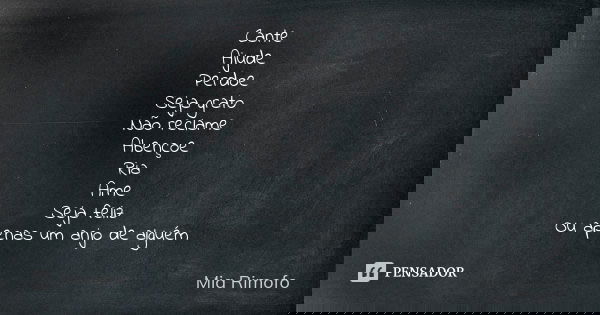 Cante
Ajude
Perdoe
Seja grato
Não reclame
Abençoe
Ria
Ame
Seja feliz
Ou apenas um anjo de alguém
Mia Rimofo
PENSADOR